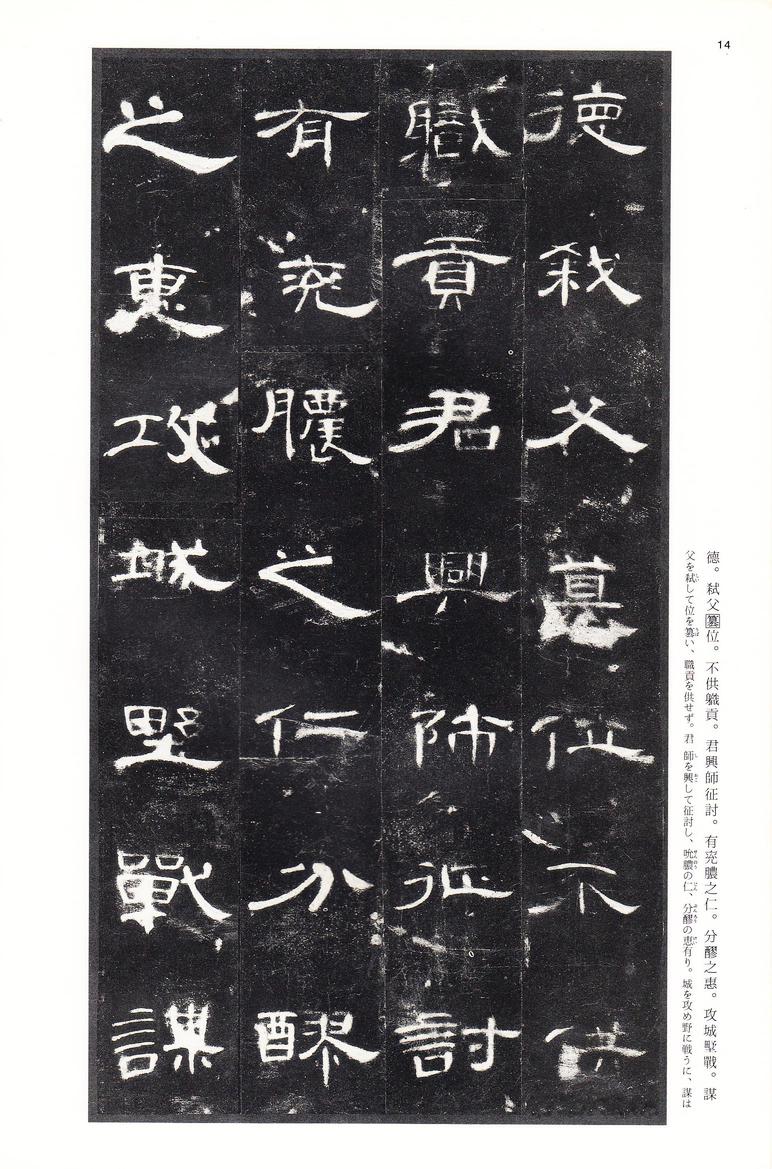 14
德弑父簒位不供
職貢君興師征討
有兖膿之仁分醪
之惠攻城埜戰謀
德。弑父簒位。不供職貢。君興師征討。有兖膿之仁。分醪之惠。攻城埜戰。謀
父を弑して位を簒い、職貢を供せず。君 師を興して征討し、吮膿の仁、分醪の恵有り。城を攻め野に戦うに、謀は